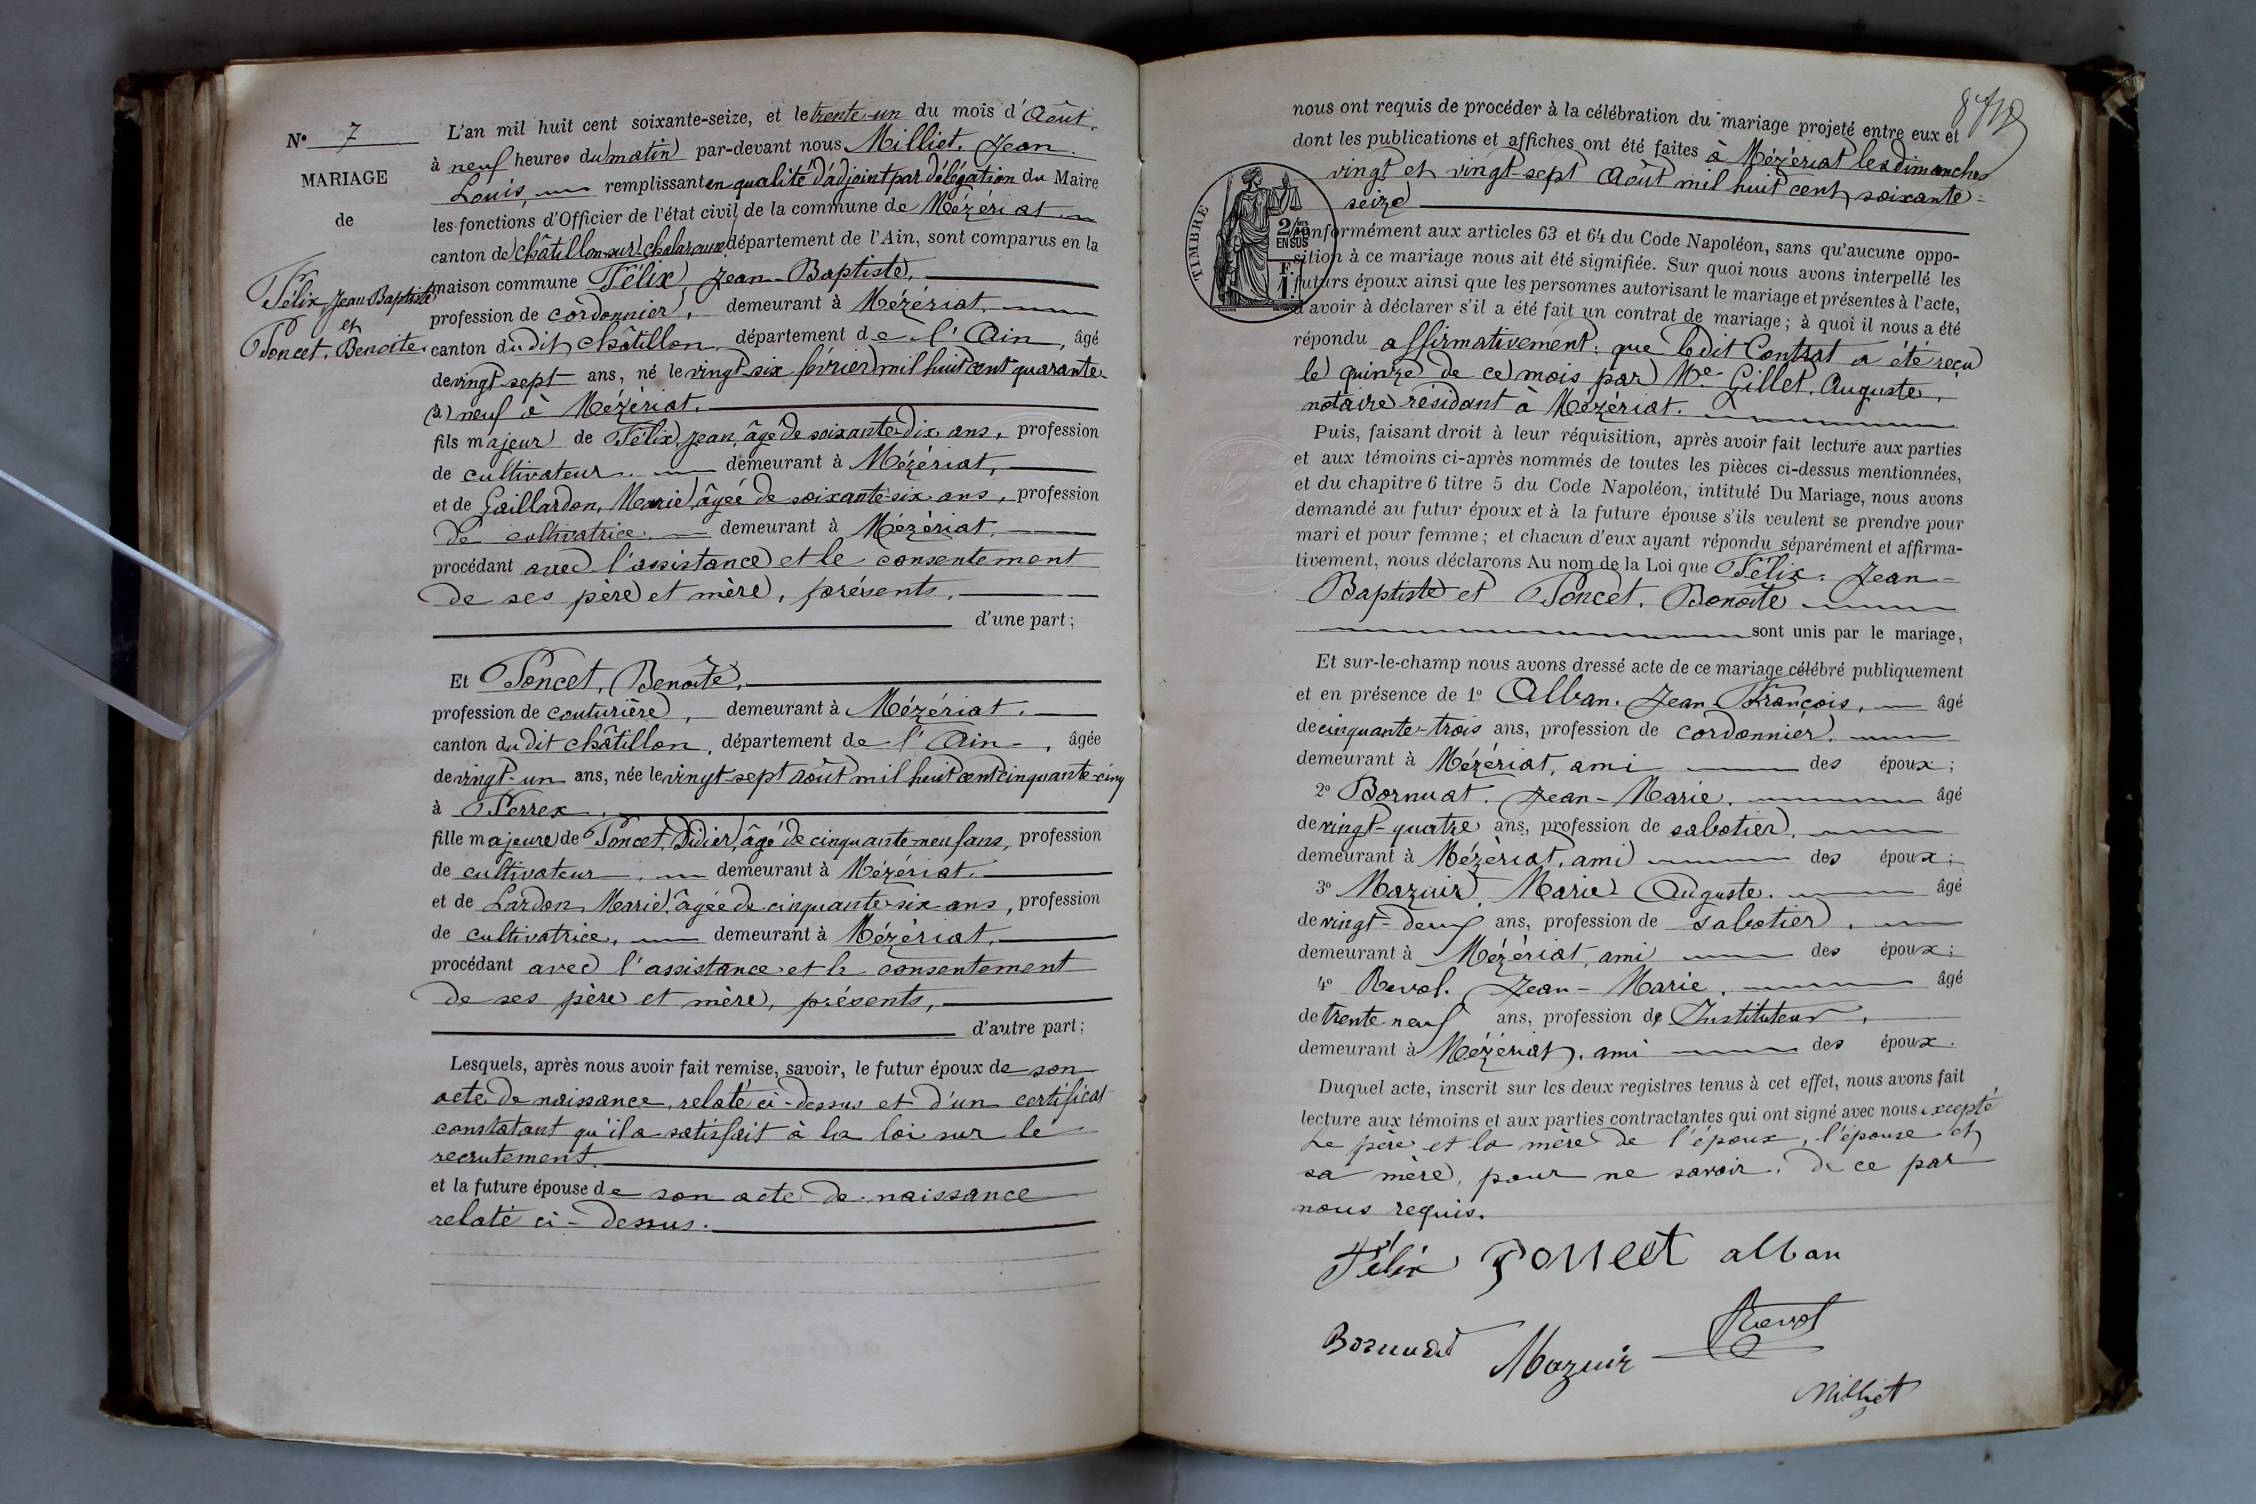 N° 7
MARIAGE
de
Félix, Jean Baptiste
et
Poncet, Benoîte.
L'an mil huit cent soixante-seize, et le trente-un du mois d'Août,
à neuf heures du matin par-devant nous Milliet, Jean
Louis, remplissant en qualité d'adjoint par délégation du Maire
les fonctions d'Officier de l'état civil de la commune de Mézériat
canton de Châtillon-sur-Chalaronne département de l'Ain, sont comparus en la
maison commune Félix, Jean-Baptiste,
profession de cordonnier, demeurant à Mézériat,
canton du dit Châtillon, département de l'Ain, âgé
de vingt-sept ans, né le vingt-six février mil huit cent quarante-
neuf à Mézériat.
fils majeur de Félix, Jean, âgé de soixante-dix ans, profession
de cultivateur. demeurant à Mézériat,
et de Gaillardon, Marie, âgée de soixante-six ans, profession
de cultivatrice. demeurant à Mézériat,
procédant avec l'assistance et le consentement
de ses père et mère, présents,
d'une part;
Et Poncet, Benoîte,
profession de couturière, demeurant à Mézériat,
canton du dit Châtillon, département de l'Ain, âgée
de vingt-un ans, née le vingt-sept août mil huit cent cinquante-cinq
à Perrex,
fille majeure de Poncet, Didier, âgé de cinquante-neuf ans, profession
de cultivateur, demeurant à Mézériat,
et de Lardon, Marie, âgée de cinquante-six ans, profession
de cultivatrice, demeurant à Mézériat,
procédant avec l'assistance et le consentement
de ses père et mère, présents,
d'autre part;
Lesquels, après nous avoir fait remise, savoir, le futur époux de son
acte de naissance, relaté ci-dessus et d'un certificat
constatant qu'il a satisfait à la loi sur le
recrutement.
et la future épouse de son acte de naissance
relaté ci-dessus.
nous ont requis de procéder à la célébration du mariage projeté entre eux et
dont les publications et affiches ont été faites à Mézériat les dimanches
vingt et vingt-sept Août mil huit cent soixante-
seize
TIMBRE
2/10 EN SUS
F. 1
Conformément aux articles 63 et 64 du Code Napoléon, sans qu'aucune oppo-
sition à ce mariage nous ait été signifiée. Sur quoi nous avons interpellé les
futurs époux ainsi que les personnes autorisant le mariage et présentes à l'acte,
d'avoir à déclarer s'il a été fait un contrat de mariage; à quoi il nous a été
répondu affirmativement, que le dit Contrat a été reçu
le quinze de ce mois par Me Gillet, Auguste,
notaire résidant à Mézériat.
Puis, faisant droit à leur réquisition, après avoir fait lecture aux parties
et aux témoins ci-après nommés de toutes les pièces ci-dessus mentionnées,
et du chapitre 6 titre 5 du Code Napoléon, intitulé Du Mariage, nous avons
demandé au futur époux et à la future épouse s'ils veulent se prendre pour
mari et pour femme; et chacun d'eux ayant répondu séparément et affirma-
tivement, nous déclarons Au nom de la Loi que Félix, Jean-
Baptiste et Poncet, Benoîte
sont unis par le mariage,
Et sur-le-champ nous avons dressé acte de ce mariage célébré publiquement
et en présence de 1° Alban, Jean François, âgé
de cinquante-trois ans, profession de cordonnier,
demeurant à Mézériat, ami des époux;
2° Bornuat, Jean-Marie, âgé
de vingt-quatre ans, profession de sabotier,
demeurant à Mézériat, ami des époux;
3° Mazuir, Marie Auguste, âgé
de vingt-deux ans, profession de sabotier,
demeurant à Mézériat, ami des époux;
4° Revol, Jean-Marie, âgé
de trente neuf ans, profession de Instituteur,
demeurant à Mézériat, ami des époux.
Duquel acte, inscrit sur les deux registres tenus à cet effet, nous avons fait
lecture aux témoins et aux parties contractantes qui ont signé avec nous excepté
Le père et la mère de l'époux, l'épouse et
sa mère, pour ne savoir, de ce par
nous requis.
Félix Poncet alban
Bornuat Mazuir Revol
Milliet